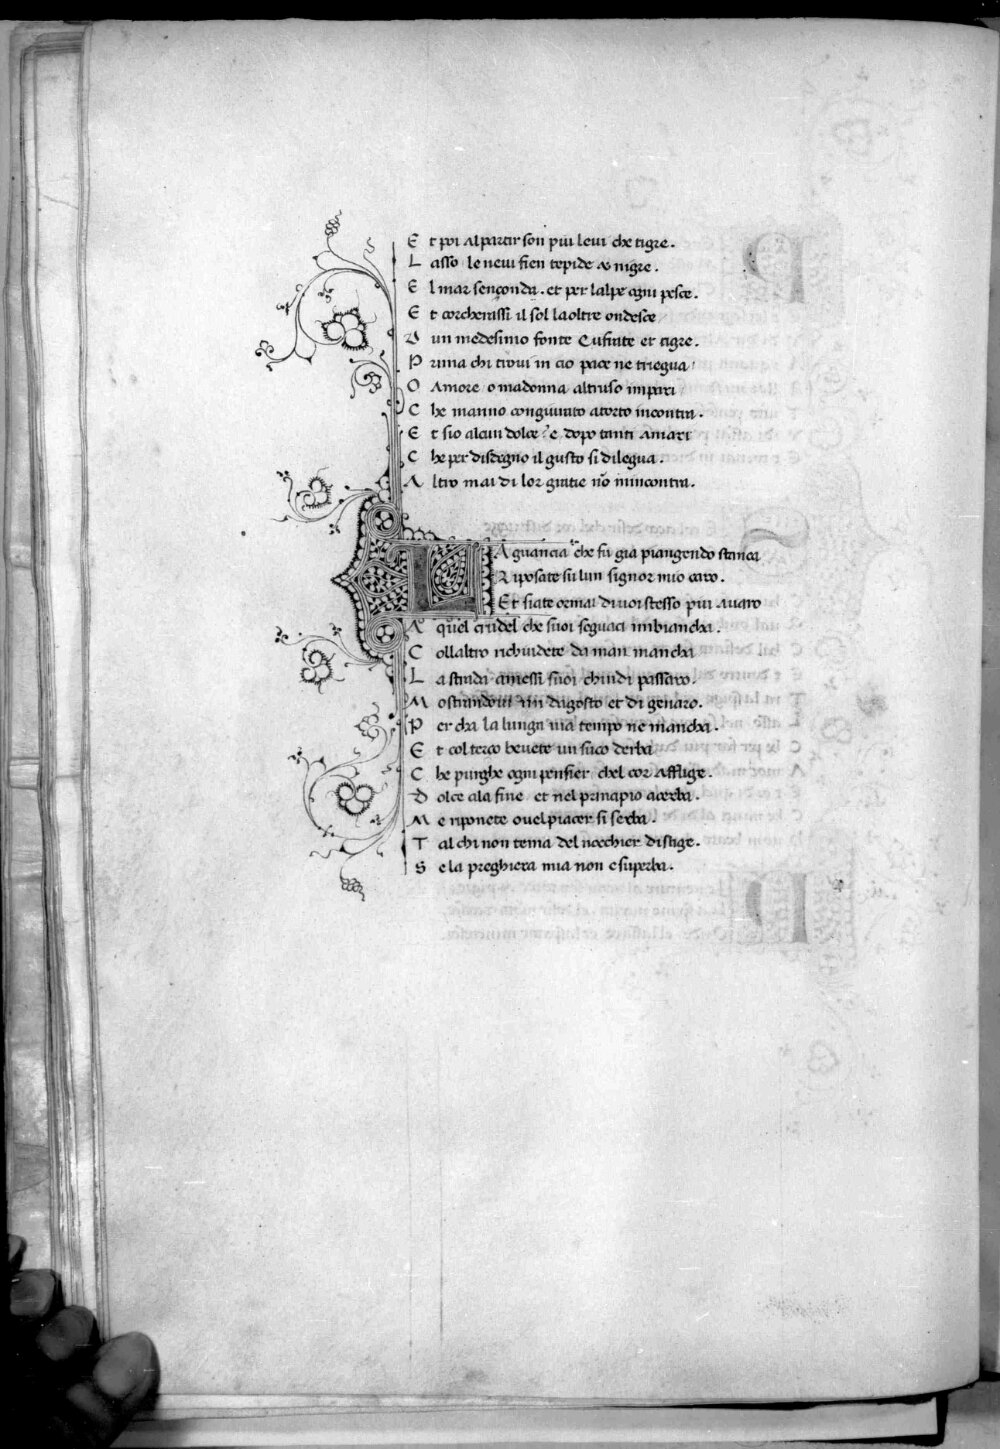 E t poi al partir son piu leui che tigre.
L asso le neui fien tepide & nigre.
E l mar senconda. et per lalpe ogni pesce.
E t corcherassi il sol la oltre ondesce
D un medesimo fonte Eufrate et tigre.
P rima chi troui in cio pace ne triegua
O Amore o madonna altruso impari
C he manno congiurato atorto incontra.
E t sio alcun dolce? e dopo tanti amari
C he per disdegno il gusto si dilegua.
A ltro mai di lor gratie nõ mincontra.
LA guancia che fu gia piangendo stanca
R iposate su lun signor mio caro.
Et siate ormai di uoi stesso piu auaro
A quel crudel che suoi seguaci imbiancha.
C ollaltro richiudete da man mancha
L a strada amessi suoi chindi passaro.
M ostrandoui un dagosto et di genaro.
P er cha la lunga uia tempo ne mancha.
E t col terço beuete un suco derba
C he purghe ogni pensier chel cor afflige.
D olce ala fine et nel principio acerba.
M e riponete ouel piacer si serba.
T al chi non tema del nocchier distige.
S e la preghiera mia non e superba.